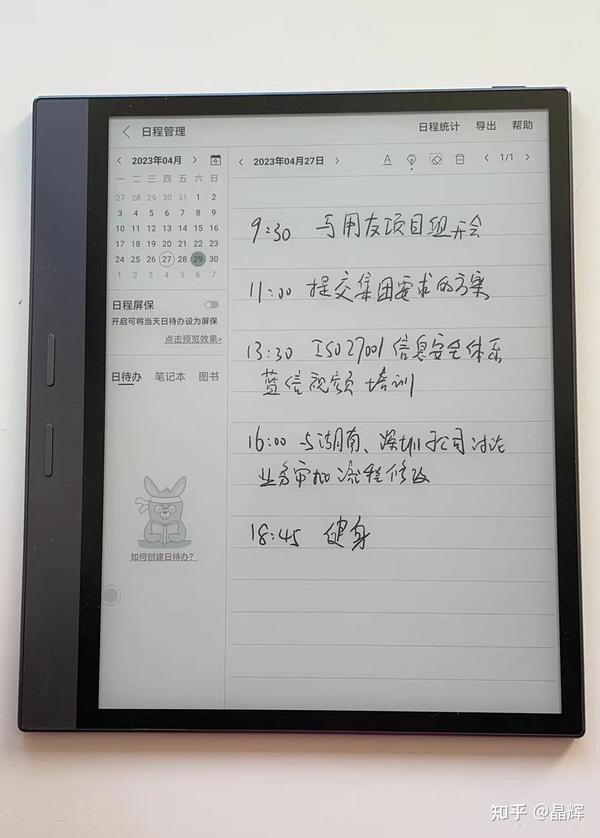 日程管理
日程统计 导出 帮助
2023年04月
2023年04月27日
A 1/1
一 二 三 四 五 六 日
27 28 29 30 31 1 2
3 4 5 6 7 8 9
10 11 12 13 14 15 16
17 18 19 20 21 22 23
24 25 26 27 28 29 30
1 2 3 4 5 6 7
日程屏保
开启可将当天日待办设为屏保
点击预览效果>
日待办 笔记本 图书
如何创建日待办?
9:30 与用友项目组开会
11:00 提交集团要求的方案
13:30 ISO27001信息安全体系
蓝信视频培训
16:00 与湖南、深圳子公司讨论
业务审批流程修改
18:45 健身
知乎 @晶辉